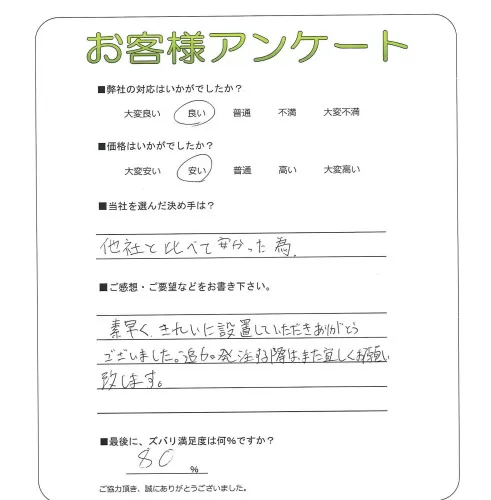 お客様アンケート
■弊社の対応はいかがでしたか？
大変良い　良い　普通　不満　大変不満
■価格はいかがでしたか？
大変安い　安い　普通　高い　大変高い
■当社を選んだ決め手は？
他社と比べて安かった為.
■ご感想・ご要望などをお書き下さい。
素早く、きれいに設置していただきありがとう
ございました。発注する際はまた宜しくお願い
致します。
■最後に、ズバリ満足度は何％ですか？
80 %
ご協力頂き、誠にありがとうございました。